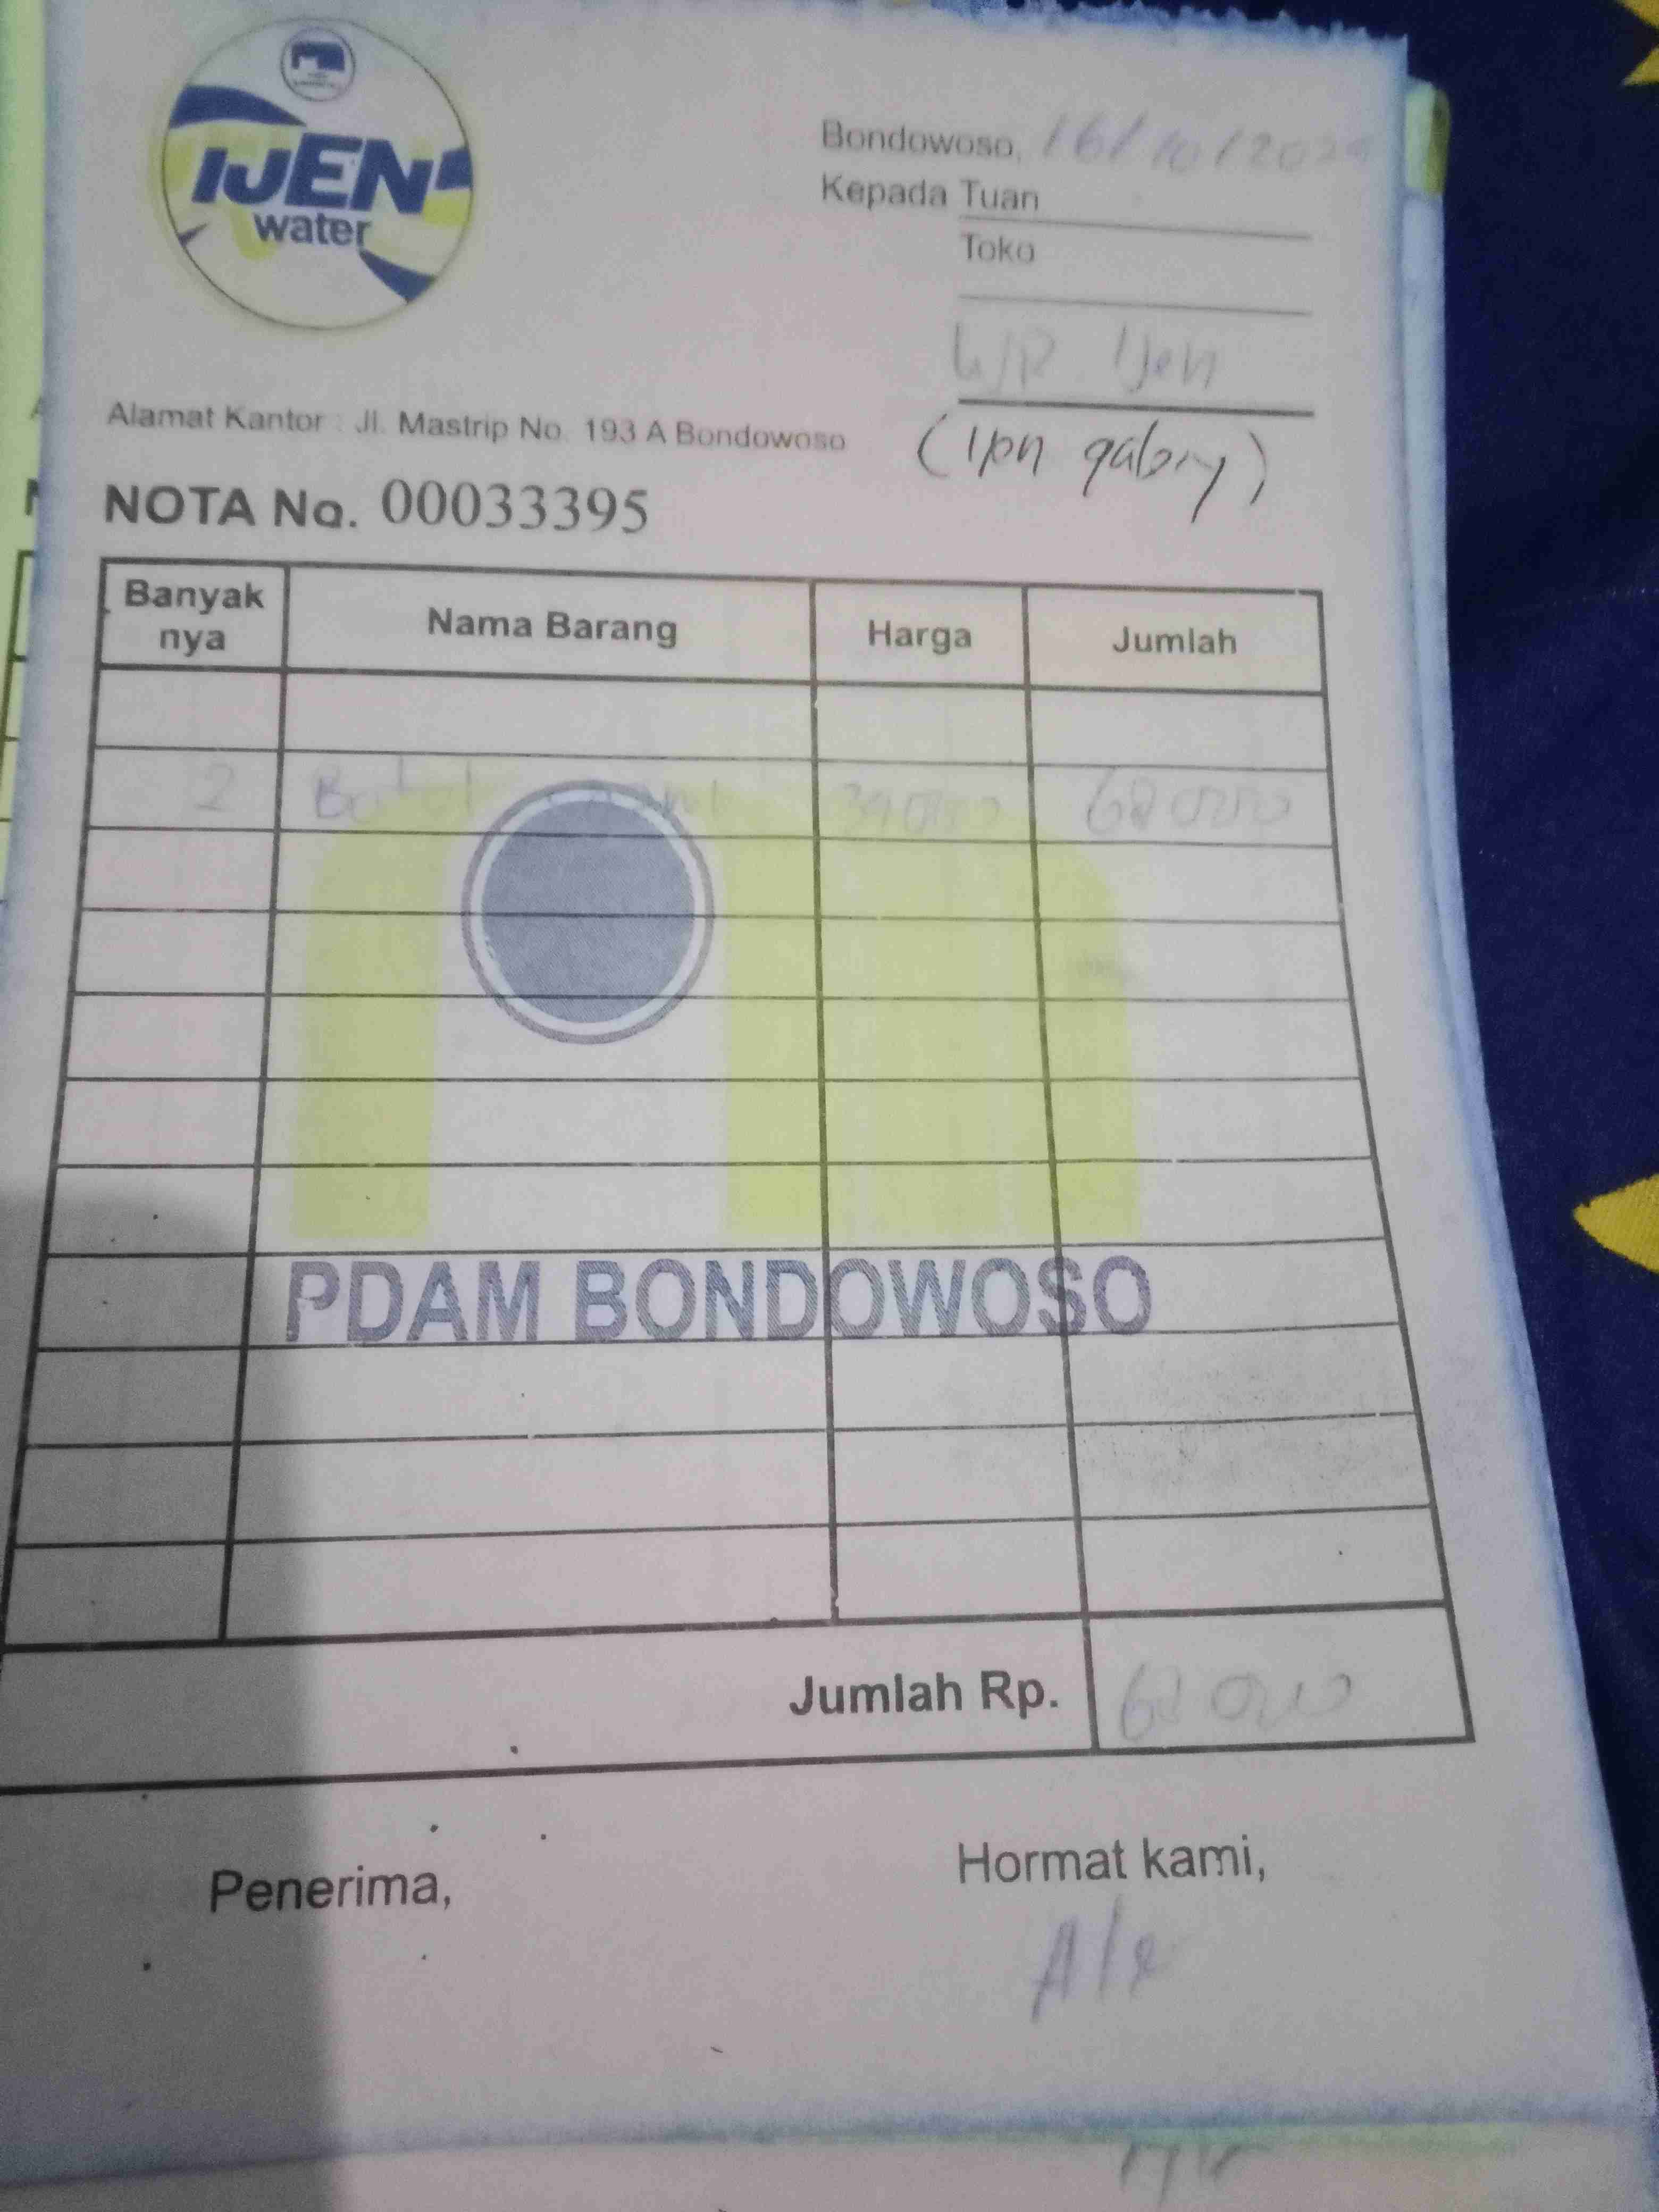 IJEN
water
Bondowoso, 16/10/2024
Kepada Tuan
Toko
WR. Ijen
Alamat Kantor : Jl. Mastrip No. 193 A Bondowoso
NOTA No. 00033395
Banyak nya Nama Barang Harga Jumlah
2 Botol 34000 68000
PDAM BONDOWOSO
Jumlah Rp. 68000
Penerima,
Hormat kami,